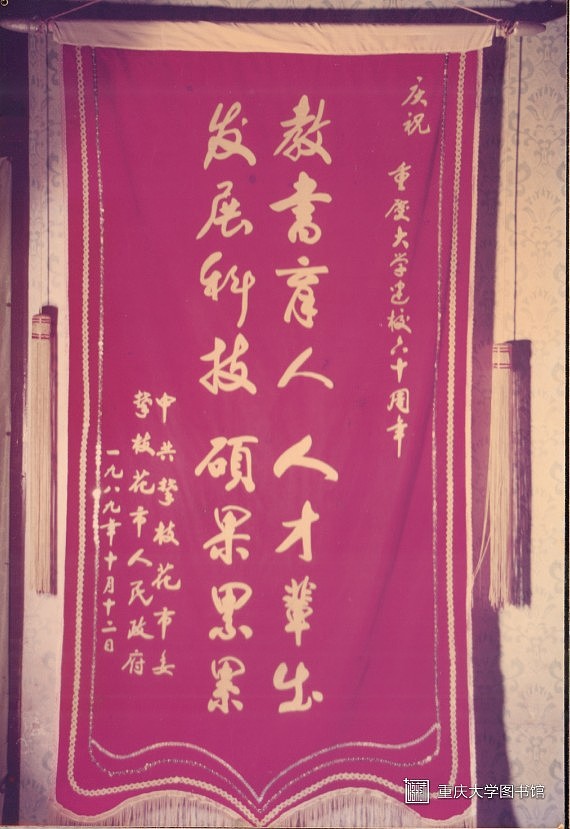 庆祝 重庆大学建校六十周年
教书育人 人才辈出
发展科技 硕果累累
中共攀枝花市委
攀枝花市人民政府
一九八九年十月十二日
重庆大学图书馆